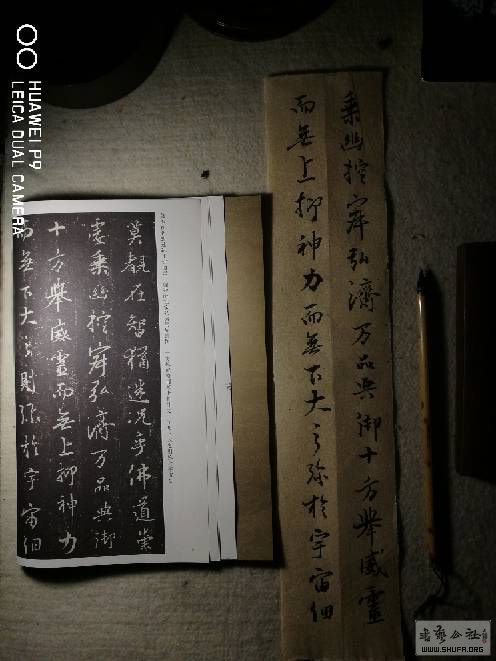 乘幽控寂弘濟万品典御十方舉威靈
而無上抑神力而無下大之弥於宇宙細
莫覩在智猶迷况乎佛道崇
虚乘幽控寂弘濟万品典御
十方舉威靈而無上抑神力
而無下大之則弥於宇宙細
HUAWEI P9
LEICA DUAL CAMERA
书艺公社
WWW.SHUFA.ORG